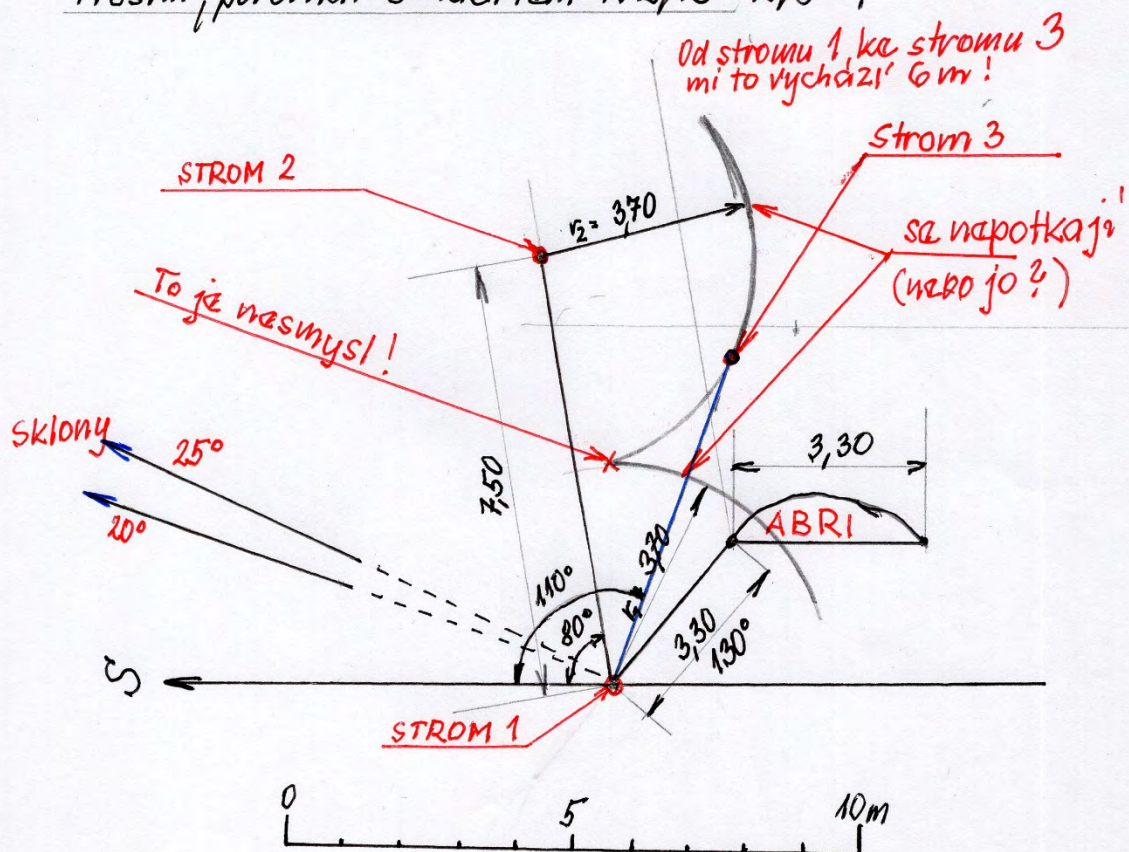 Od stromu 1 ke stromu 3
mi to vychází 6 m!
Strom 3
STROM 2
r₂= 3,70
se nepotkají
(nebo jo?)
To je nesmysl!
Sklony
25°
20°
7,50
3,30
ABRI
110°
80°
r₁= 3,70
3,30
130°
S
STROM 1
0 5 10m